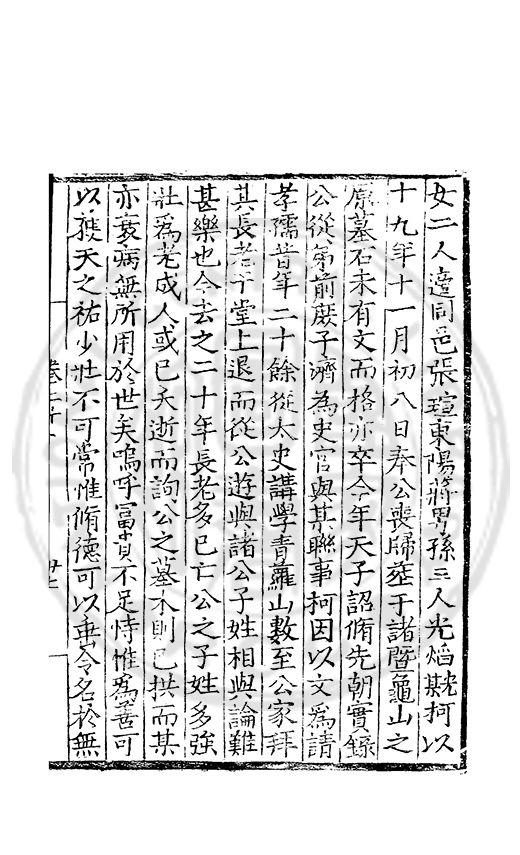 女二人適同邑張瑄東陽蔣男孫三人光焰光熙柯以
十九年十一月初八日奉公喪歸葬于諸暨龜山之
原墓石未有文而格亦卒今年天子詔脩先朝實錄
公從弟前庶子濟為史官與某聯事柯因以文為請
孝孺昔年二十餘從太史講學青蘿山數至公家拜
其長老于堂上退而從公遊與諸公子姓相與論難
甚樂也今去之二十年長老多已亡公之子姓多強
壯為老成人或已夭逝而詢公之墓木則已拱而某
亦衰病無所用於世矣嗚呼富貴不足恃惟為善可
以獲天之祐少壯不可常惟脩德可以垂令名於無
卷二十